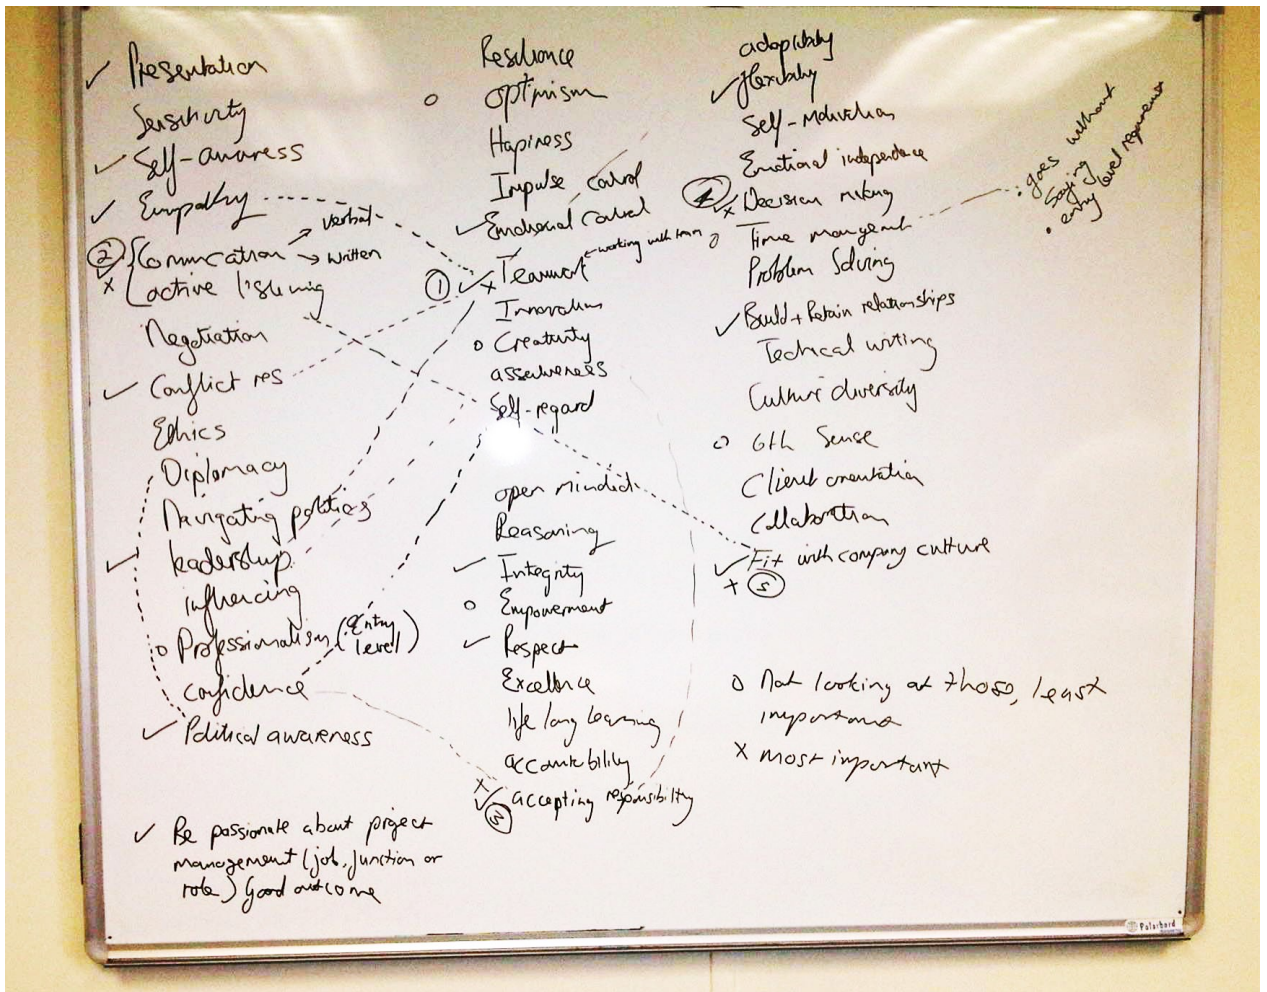 ✓ Presentation
Sensitivity
✓ Self-awaress
✓ Empathy
verbal
② ✓ Commucation
written
x active listening
Negotiation
✓ Conflict res
Ethics
Diplomacy
Navigating politics
✓ leadership
influencing
o Professionalism (Entry
level)
confidence
✓ Political awareness
✓ Be passionate about project
management (job, function or
role) good outcome
Resilience
o optimism
Hapiness
Impulse Control
✓ Emotional Control
working with team
① ✓ x Teamwork
Innovation
o Creativity
assertiveness
Self-regard
open minded
Reasoning
✓ Integrity
o Empowerment
✓ Respect
Excellence
life long learning
accountability
x ✓ ③ accepting responsibility
adaptability
✓ flexibility
Self-motivation
Emotional independence
④ ✓ x Decision making
o Time management
Problem Solving
✓ Build + Retain relationships
Techical writing
Culture diversity
o 6th Sense
Client orientation
Collaboration
✓ Fit with company culture
x ⑤
o Not looking at those, least
important
x most important
• goes without
saying
• entry level requirement
Polarbord